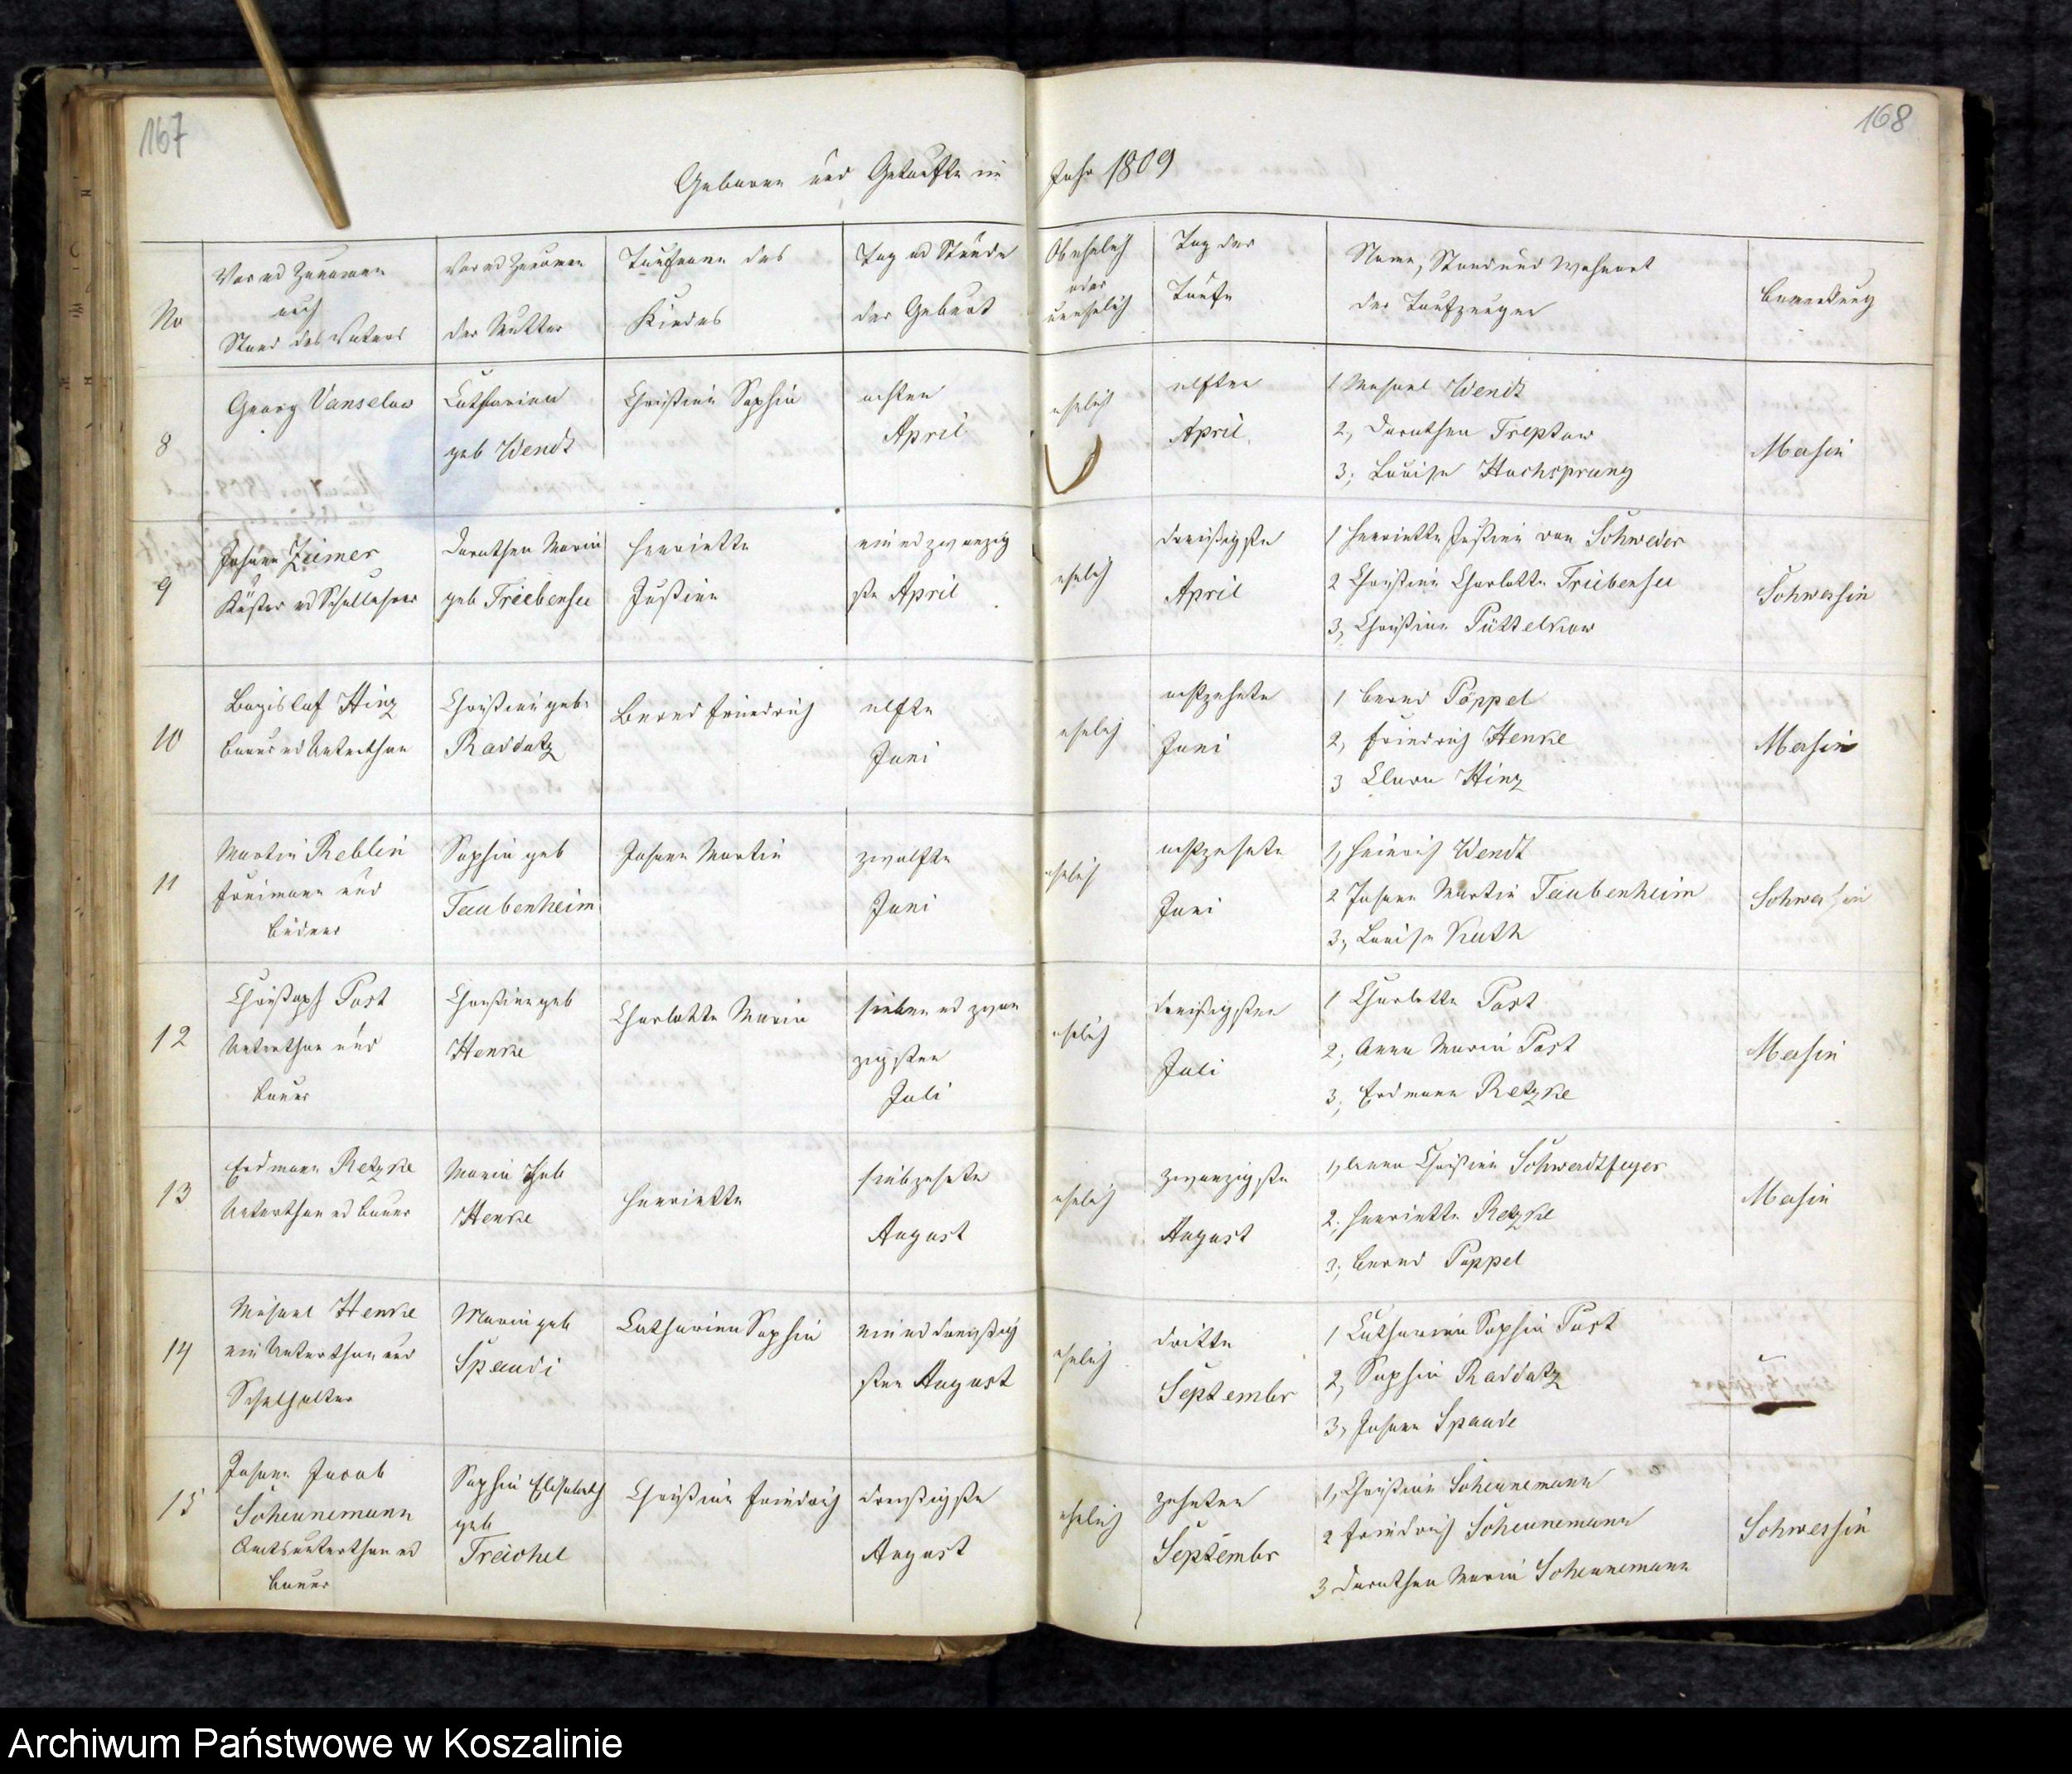 167
168
Geborene und Getaufte im Jahr 1809
No
Vor und Zunamen
auch
Stand des Vaters
Vor und Zunamen
der Mutter
Taufname des
Kindes
Tag und Stunde
der Geburt
Ob ehelich
oder
unehelich
Tag der
Taufe
Name, Stand und Wohnort
der Taufzeugen
Bemerkung
8
Georg Vanselow
Catharina
geb Wendt
Christine Sophie
achten
April
ehelich
elften
April
1 Michael Wendt
2, Dorothea Treptow
3; Louise Hochsprung
Mersin
9
Johann Zeimer
Küster und Schullehrer
Dorothea Marie
geb Triebensee
Henriette
Justine
ein und zwanzig
ste April
ehelich
dreißigste
April
1 Henriette Justine von Schweder
2 Christine Charlotte Triebensee
3, Christine Püttelkow
Schwessin
10
Bogislaf Hinz
Bauer und Unterthan
Christine geb.
Raddatz
Bernd Friedrich
elfte
Juni
ehelich
achtzehnte
Juni
1 Bernd Pöppel
2, Friedrich Henke
3 Clara Hinz
Mersin
11
Martin Reblin
Freimann und
Büdner
Sophie geb
Taubenheim
Johann Martin
zwölfte
Juni
ehelich
achtzehnte
Juni
1, Heinrich Wendt
2 Johann Martin Taubenheim
3, Louise Kuth
Schwessin
12
Christoph Post
Unterthan und
Bauer
Christine geb
Henke
Charlotte Marie
sieben und zwan
zigsten
Juli
ehelich
dreißigsten
Juli
1 Charlotte Post
2; Anna Marie Post
3; Erdmann Retzke
Mersin
13
Erdmann Retzke
Unterthan und Bauer
Marie geb
Henke
Henriette
siebzehnte
August
ehelich
zwanzigste
August
1, Anna Christine Schwerdtfeger
2; Henriette Retzke
3; Bernd Poppel
Mersin
14
Michael Henke
ein Unterthan und
Marie geb
Spaudi
Catharine Sophie
ein und dreißig
sten August
ehelich
dritte
September
1 Catharine Sophie Post
2, Sophie Raddatz
3, Johann Spaude
15
Johann Jacob
Schünemann
Amtsunterthan und
Bauer
Sophie Elisabeth
geb
Treichel
Christian Friedrich
dreißigste
August
ehelich
zehnten
Septembr
1, Christine Schünemann
2 Friedrich Schünemann
3 Dorothea Marie Schünemann
Schwessin
Archiwum Państwowe w Koszalinie